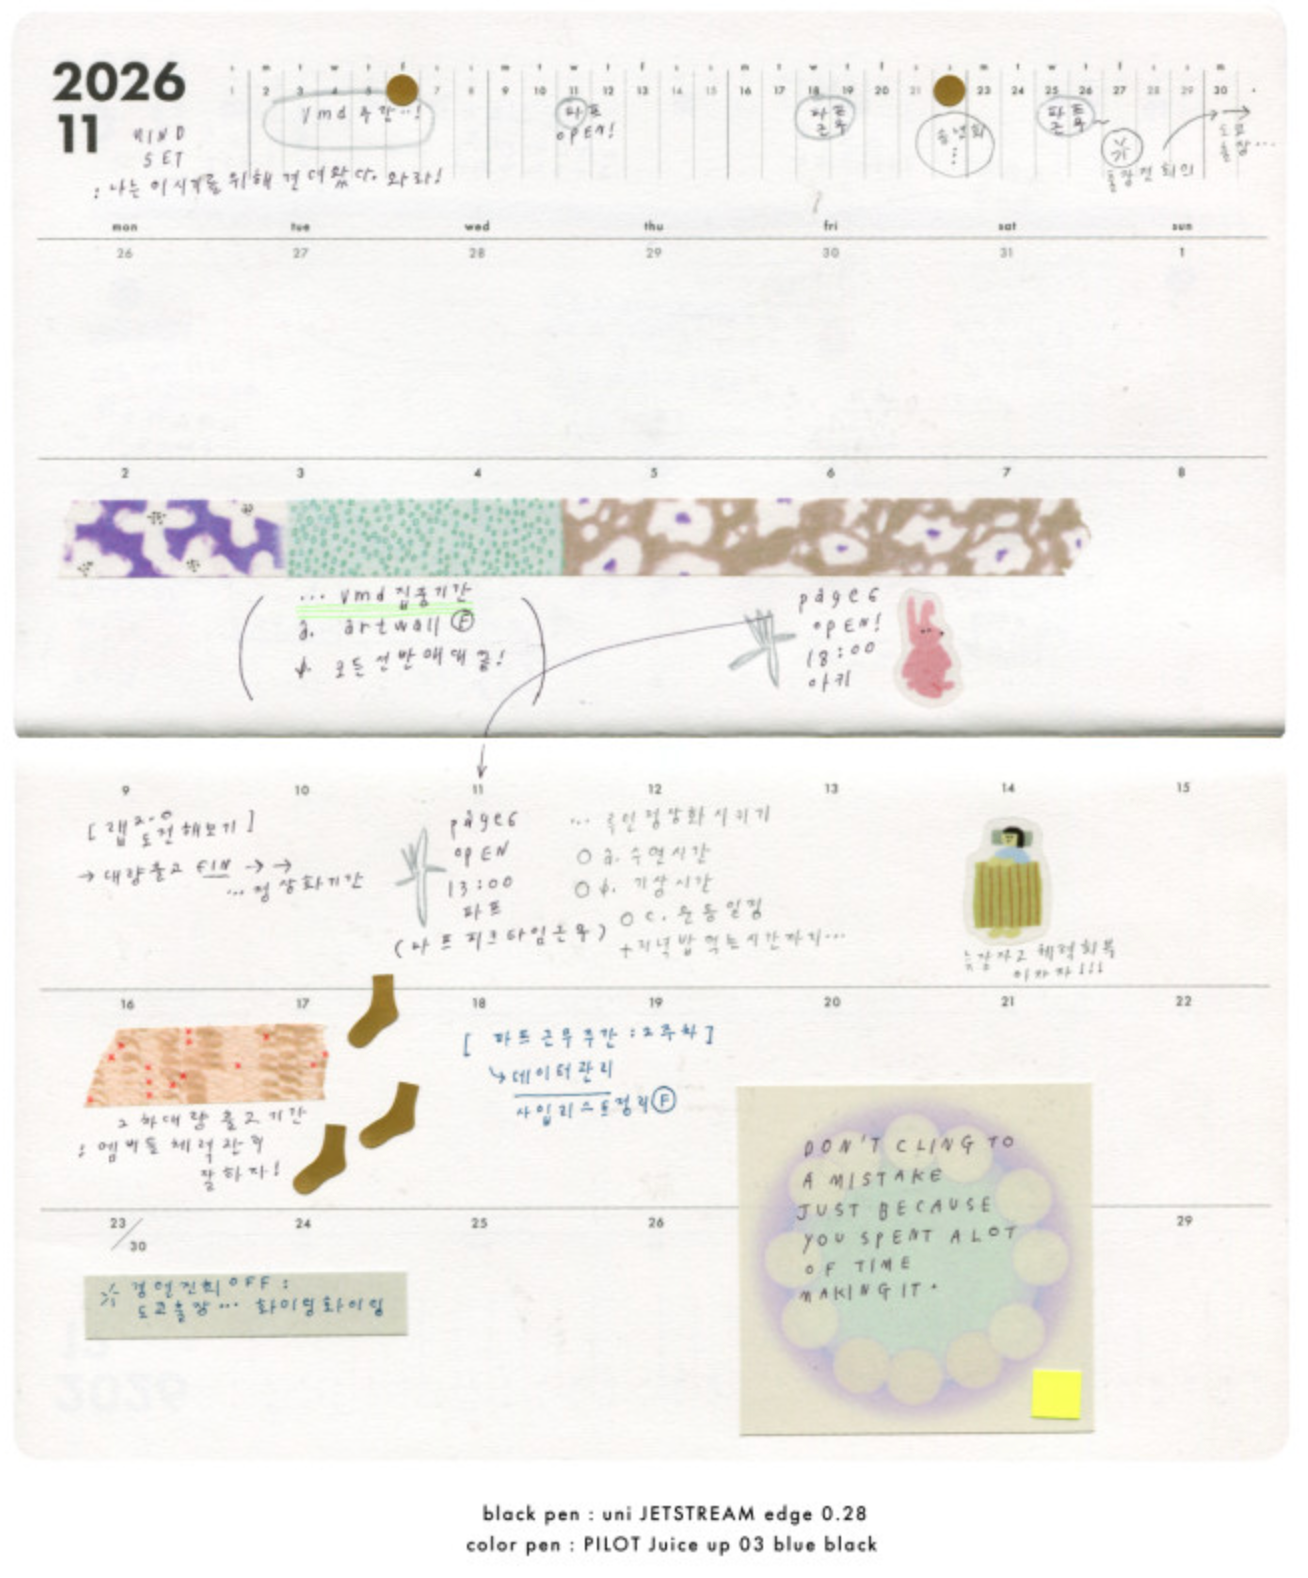 2026
11
s m t w t f s s m t w t f s s m t w t f s s m t w t f s s m
1 2 3 4 5 7 8 9 10 11 12 13 14 15 16 17 18 19 20 21 23 24 25 26 27 28 29 30
vmd 주간…!
파프
OPEN!
파프
근무
송년회
파프
근무
출장전 회의
도쿄
출장…
MIND
SET
: 나는 이 시기를 위해 견뎌왔다. 와라!
mon tue wed thu fri sat sun
26 27 28 29 30 31 1
2 3 4 5 6 7 8
… vmd 집중기간
a. artwall Ⓕ
b. 모든 선반 매대 끝!
page6
OPEN!
18:00
아키
9 10 11 12 13 14 15
[랩 2.0
도전해보기]
→ 대량출고 FIN → →
… 정상화기간
page6
OPEN
13:00
파프
(파프 피크타임근무)
… 루틴정상화시키기
○ a. 수면시간
○ b. 기상시간
○ c. 운동일정
+ 저녁밥 먹는시간까지…
늦잠자고 체력회복
이자자!!!
16 17 18 19 20 21 22
2차대량 출고기간
: 멤버들 체력관리
잘하자!
[ 파프근무주간 : 2주차 ]
↳ 데이터관리
사입리스트정리Ⓕ
DON'T CLING TO
A MISTAKE
JUST BECAUSE
YOU SPENT A LOT
OF TIME
MAKING IT.
23/30 24 25 26 29
경언진희 OFF :
도쿄출장… 화이팅화이팅
black pen : uni JETSTREAM edge 0.28
color pen : PILOT Juice up 03 blue black